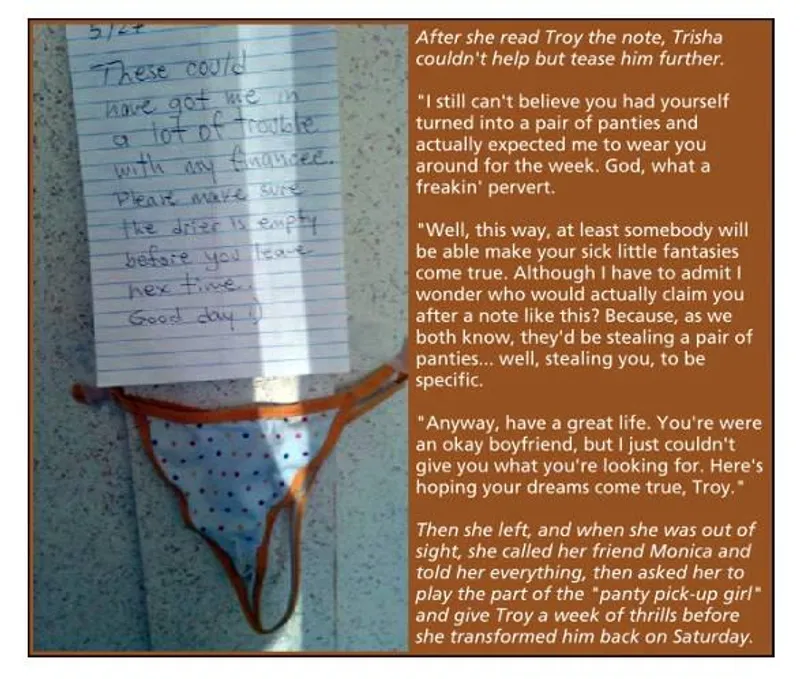 5/24
These could
have got me in
a lot of trouble
with my financee.
Please make sure
the drier is empty
before you leave
nex time.
Good day :)
After she read Troy the note, Trisha
couldn't help but tease him further.
"I still can't believe you had yourself
turned into a pair of panties and
actually expected me to wear you
around for the week. God, what a
freakin' pervert.
"Well, this way, at least somebody will
be able make your sick little fantasies
come true. Although I have to admit I
wonder who would actually claim you
after a note like this? Because, as we
both know, they'd be stealing a pair of
panties... well, stealing you, to be
specific.
"Anyway, have a great life. You're were
an okay boyfriend, but I just couldn't
give you what you're looking for. Here's
hoping your dreams come true, Troy."
Then she left, and when she was out of
sight, she called her friend Monica and
told her everything, then asked her to
play the part of the "panty pick-up girl"
and give Troy a week of thrills before
she transformed him back on Saturday.